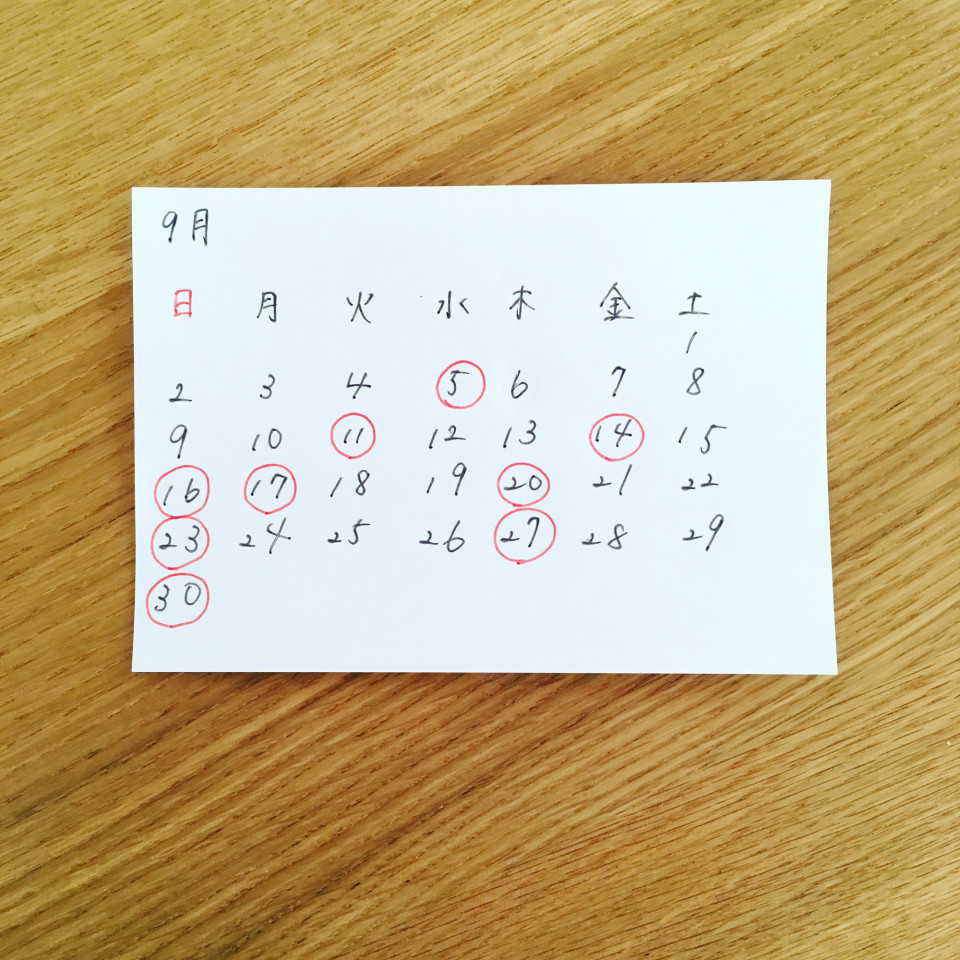 9月
日 月 火 水 木 金 土
1
2 3 4 5 6 7 8
9 10 11 12 13 14 15
16 17 18 19 20 21 22
23 24 25 26 27 28 29
30